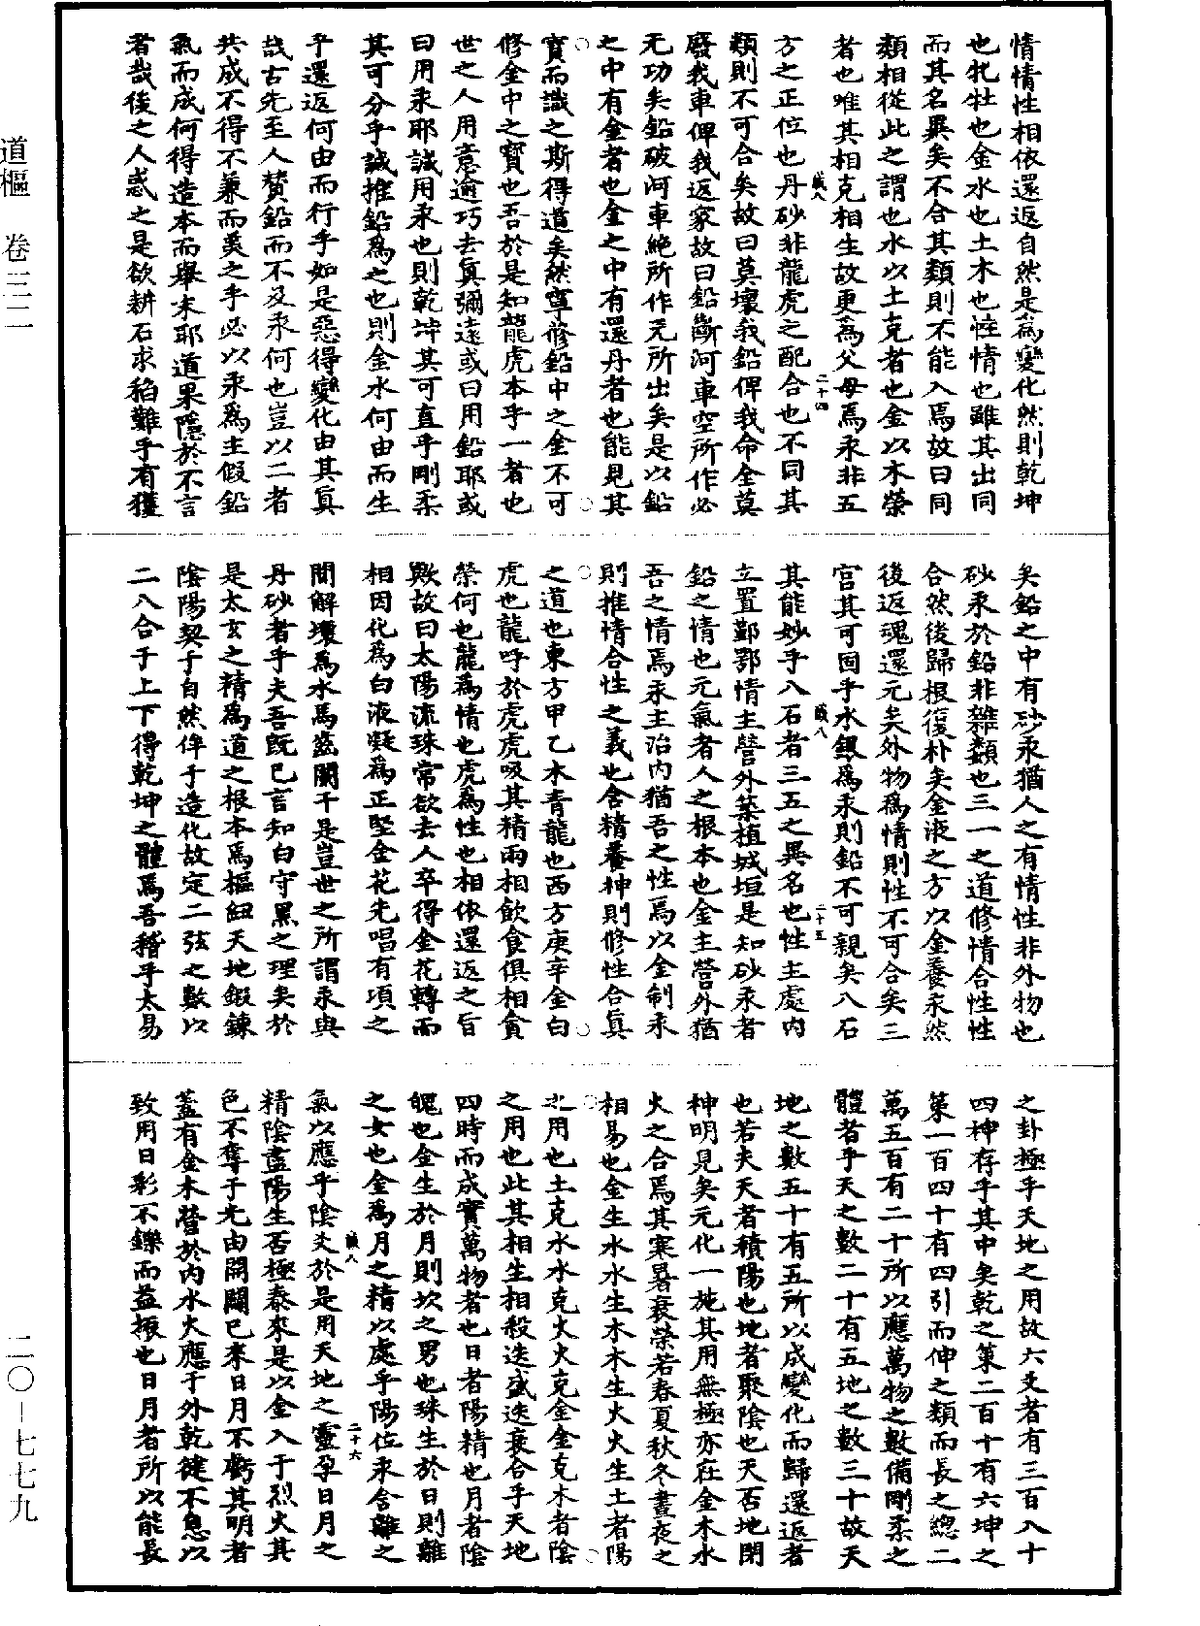 情情性相依還返自然是為變化然則乾坤
也牝牡也金水也土木也性情也雖其出同
而其名異矣不合其類則不能入焉故曰同
類相從此之謂也水以土克者也金以木榮
者也唯其相克相生故更為父母焉汞非五
誠八
二十四
方之正位也丹砂非龍虎之配合也不同其
類則不可合矣故曰莫壞我鉛俾我命全莫
廢我車俾我返家故曰鉛斷河車空所作必
无功矣鉛破河車絶所作无所出矣是以鉛
之中有金者也金之中有還丹者也能見其
寶而識之斯得道矣然寧修鉛中之金不可
修金中之寶也吾於是知龍虎本乎一者也
世之人用意逾巧去真彌遠或曰用鉛耶或
曰用汞耶誠用汞也則乾坤其可直乎剛柔
其可分乎誠推鉛為之也則金水何由而生
乎還返何由而行乎如是惡得變化由其真
哉古先至人贊鉛而不及汞何也豈以二者
共成不得不兼而美之乎必以汞為主假鉛
氣而成何得造本而舉末耶道果隱於不言
者哉後之人惑之是欲耕石求稻難乎有獲
矣鉛之中有砂汞猶人之有情性非外物也
砂汞於鉛非雜類也三一之道修情合性性
合然後歸根復朴矣金液之方以金養汞然
後返魂還元矣外物為情則性不可合矣三
宫其可固乎水銀為汞則鉛不可親矣八石
誠八
二十五
其能妙乎八石者三五之異名也性主處内
立置鄞鄂情主營外築植城垣是知砂汞者
鉛之情也元氣者人之根本也金主營外猶
吾之情焉汞主治内猶吾之性焉以金制汞
則推情合性之義也含精養神則修性合真
之道也東方甲乙木青龍也西方庚辛金白
虎也龍呼於虎虎吸其精兩相飲食俱相貪
榮何也龍為情也虎為性也相依還返之旨
歟故曰太陽流珠常欲去人卒得金花轉而
相因化為白液凝為正堅金花先唱有項之
間解壞為水馬齒闌干是豈世之所謂汞與
丹砂者乎夫吾既已言知白守黑之理矣於
是太玄之精為道之根本焉樞紐天地鍛鍊
陰陽契于自然侔于造化故定二弦之數以
二八合于上下得乾坤之體焉吾稽乎太易
之卦極乎天地之用故六爻者有三百八十
四神存乎其中矣乾之策二百十有六坤之
策一百四十有四引而伸之類而長之總二
萬五百有二十所以應萬物之數備剛柔之
體者乎天之數二十有五地之數三十故天
地之數五十有五所以成變化而歸還返者
也若夫天者積陽也地者聚陰也天否地閉
神明見矣元化一施其用無極亦在金木水
火之合焉其寒暑衰榮若春夏秋冬晝夜之
相易也金生水水生木木生火火生土者陽
之用也土克水水克火火克金金克木者陰
之用也此其相生相殺迭盛迭衰合乎天地
四時而成實萬物者也日者陽精也月者陰
魄也金生於月則坎之男也珠生於日則離
之女也金為月之精以處乎陽位汞含離之
誠八
二十六
氣以應乎陰爻於是用天地之靈孕日月之
精陰盡陽生否極泰來是以金入于烈火其
色不奪于光由開闢已來日月不虧其明者
蓋有金木營於内水火應于外乾健不息以
致用日彩不鑠而益振也日月者所以能長
道樞 卷三二
二〇－七七九